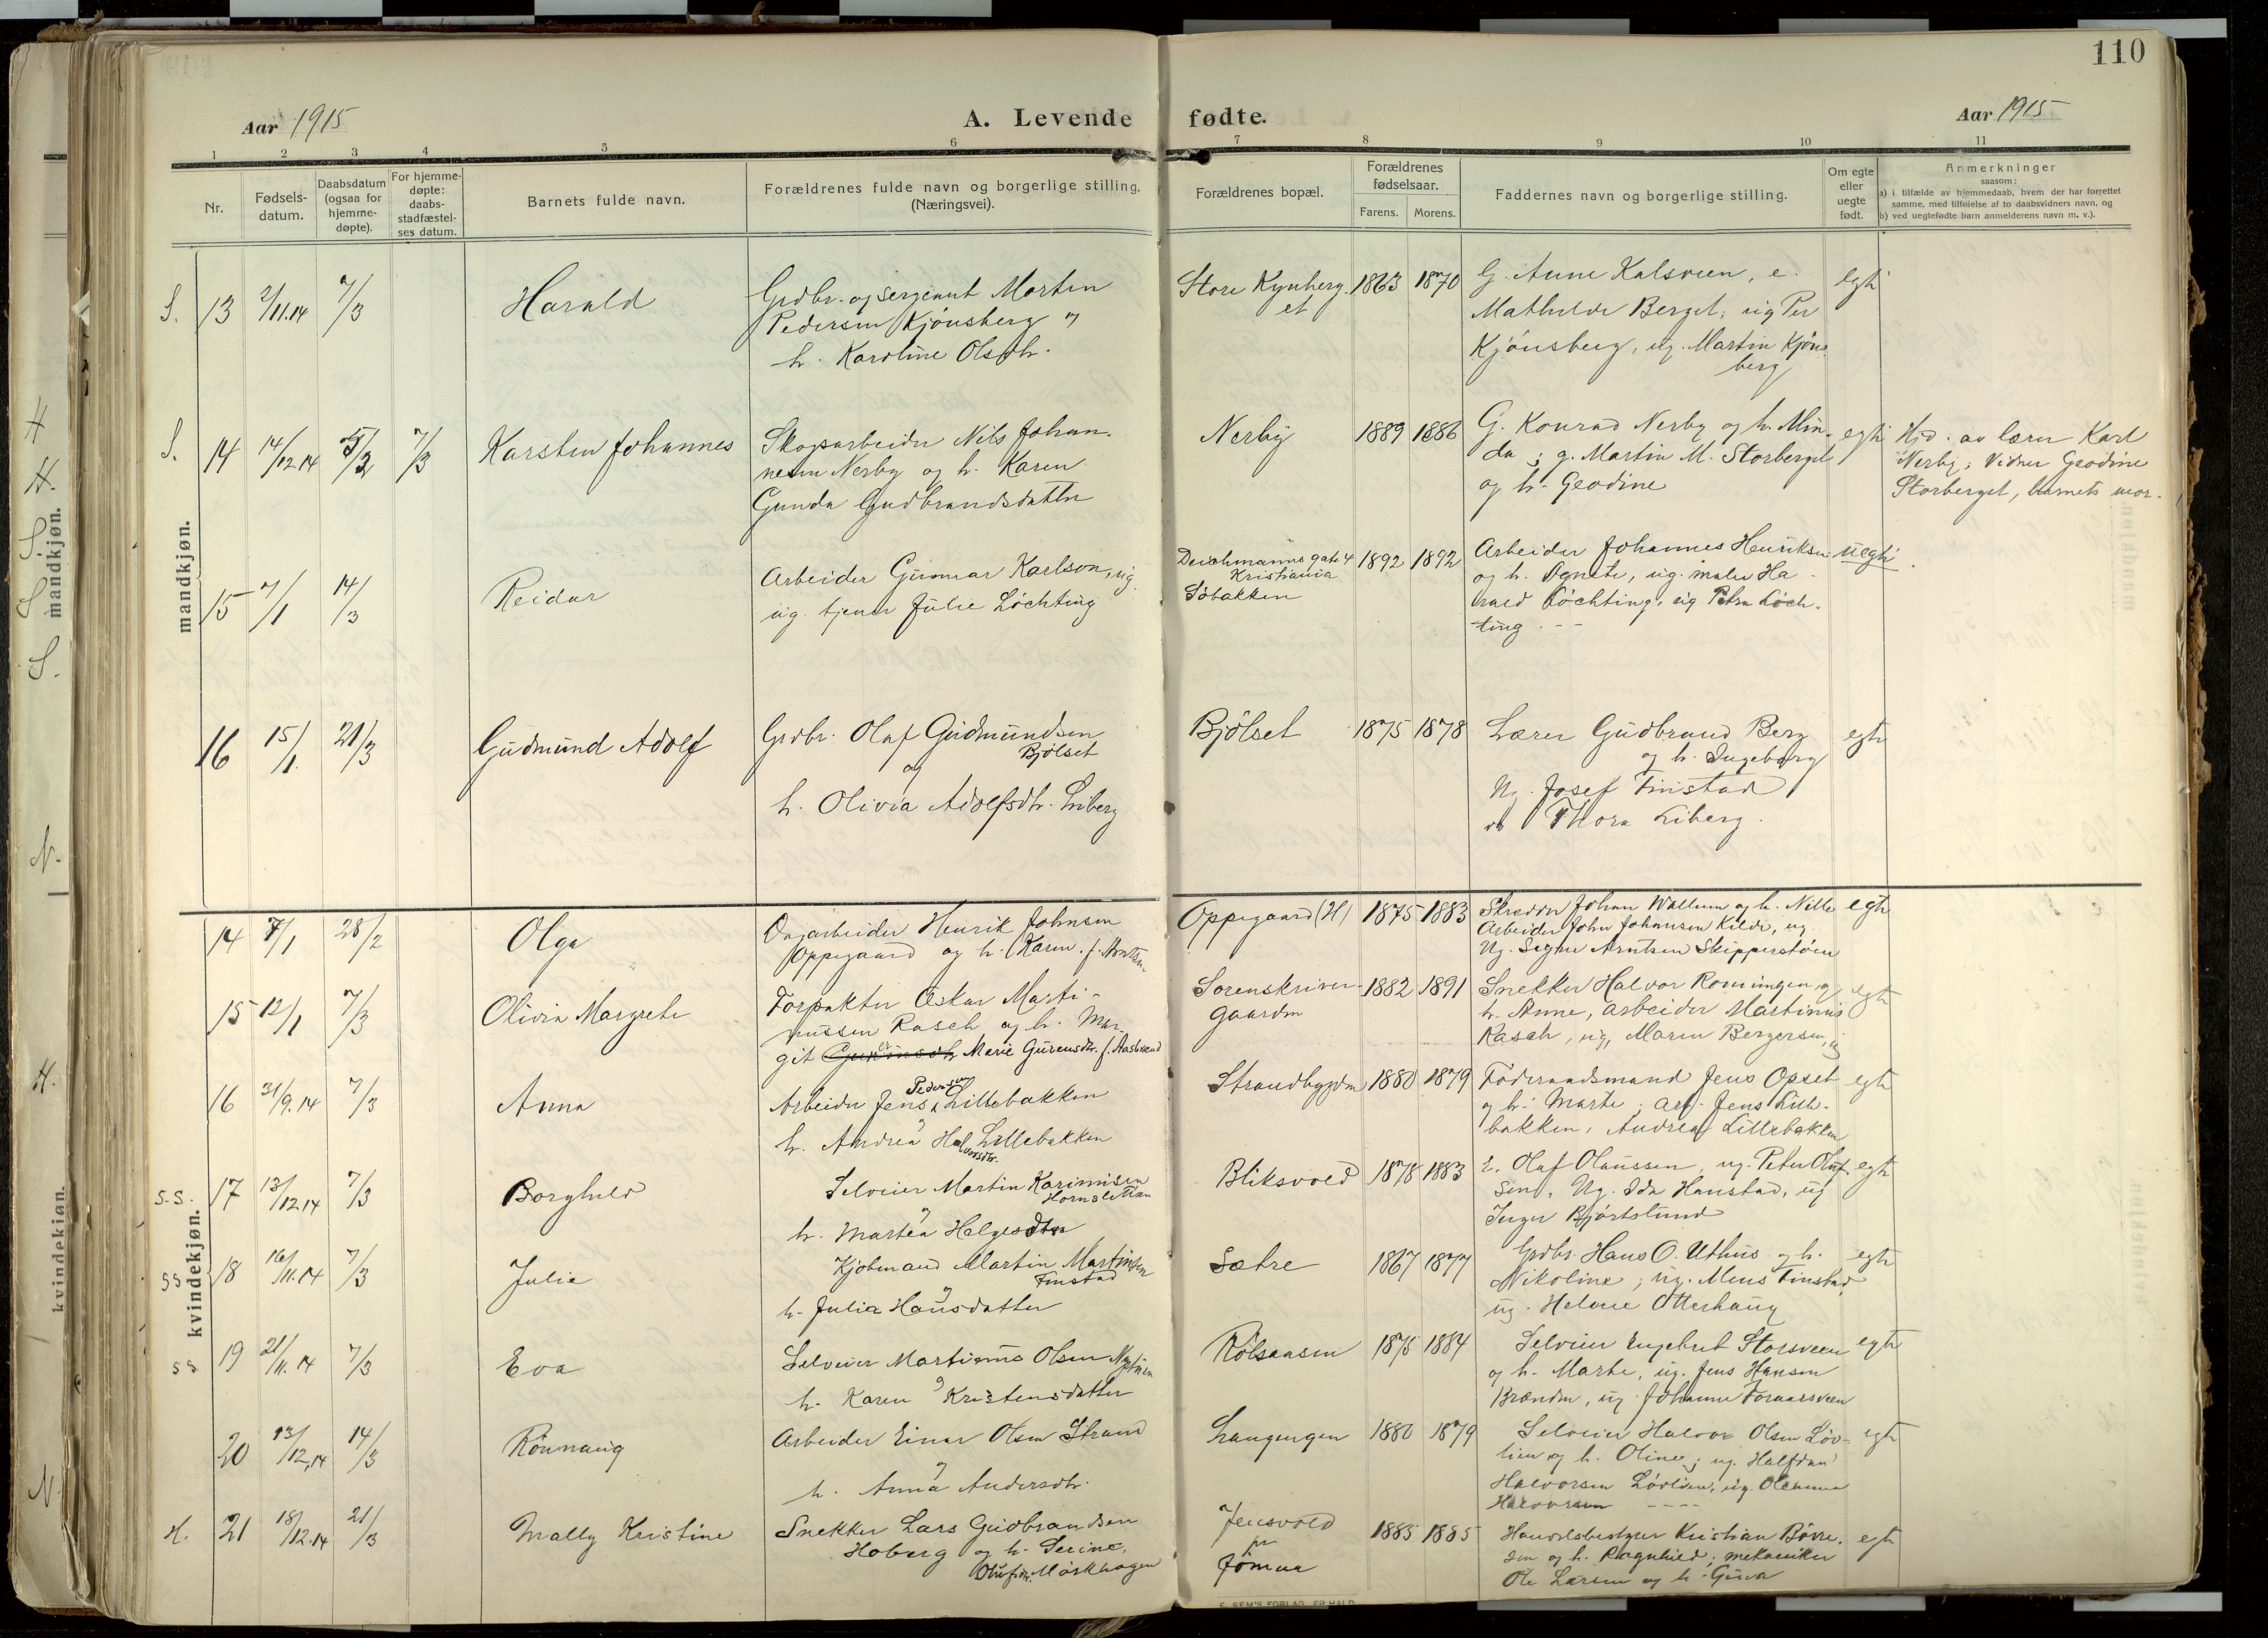 110
Aar 1915
A. Levende fødte.
Aar 1915
1 2 3 4 5 6 7 8 9 10 11
Nr.
Fødsels-
datum.
Daabsdatum
(ogsaa for
hjemme-
døpte).
For hjemme-
døpte:
daabs-
stadfæstel-
ses datum.
Barnets fulde navn.
Forældrenes fulde navn og borgerlige stilling.
(Næringsvei).
Forældrenes bopæl.
Forældrenes
fødselsaar.
Farens. Morens.
Faddernes navn og borgerlige stilling.
Om egte
eller
uegte
født.
Anmerkninger
saasom:
a) i tilfælde av hjemmedaab, hvem der har forrettet
samme, med tilføielse af to daabsvidners navn, og
b) ved uegtefødte barn anmelderens navn m. v.).
mandkjøn.
S. 13 2/11.14 7/3
Harald
Grdbr. og sergeant Martin
Pedersen Kjønsberg og
h. Karoline Olsdtr.
Store Kynberg-
et
1863 1870
G. Anne Kalsveen, e.
Mathilde Berget, ug Per
Kjønsberg, ug. Martin Kjøns-
berg
egte
S. 14 14/12.14 5/2 7/3
Karsten Johannes
Skogsarbeider Nils Johan-
nesen Nerby og h. Karen
Gunda Gudbrandsdatter
Nerby
1889 1886
G. Konrad Nerby og h. Min-
da; g. Martin M. Storberget
og h. Geodine
egte
Hjd. av lærer Karl
Nerby; Vidner Geodine
Storberget, barnets mor.
15 7/1 14/3
Reidar
Arbeider Gunnar Karlson, ug.
ug. tjener Julie Løchting
Deichmanns gate 4
Kristiania
Søbakken
1892 1892
Arbeider Johannes Henriksen
og h. Agnete, ug. maler Ha-
rald Løchting, ug. Petra Løch-
ting - - -
uegte
16 15/1. 21/3
Gudmund Adolf
Grdbr. Olaf Gudmundsen
Bjølset
og
h. Olivia Adolfsdtr. Liberg
Bjølset
1875 1878
Lærer Gudbrand Berg
og h. Ingeborg
Ug. Josef Finstad
Thora Liberg.
egte
kvindekjøn.
14 7/1 28/2
Olga
Dagarbeider Henrik Johnsen
Oppegaard og h. Karen f. Arntsen
Oppegaard (H)
1875 1883
Skredder Johan Wallum og h. Nille
Arbeider John Johansen Kilde, ug
Ug. Signe Arntsen Skipperstøen
egte
15 12/1 7/3
Olivia Margrete
Forpakter Oskar Marti-
nussen Rasch og h. Mar-
git Marie Gurensdtr. f. Aasbrænd
Sorenskriver-
gaarden
1882 1891
Snekker Halvor Ronningen og
h. Anne, arbeider Martinus
Rasch, ug, Maren Bergersen, ug
egte
16 31/9.14 7/3
Anna
Arbeider Jens Pedersen Lillebakken
og
h. Andrea Halvorsdtr. Lillebakken
Strandbygden
1880 1879
Føderaadsmand Jens Opset
og h. Marte; arb. Jens Lille-
bakken, Andrea Lillebakken
egte
S.S. 17 13/12.14 7/3
Borghild
Selveier Martin Karinusen
Hornsletten
og
h. Martea Helgesdtr
Bliksvold
1878 1883
E. Olaf Olaussen, ug. Peter Oluf-
sen, Ug. Ida Hanstad, ug
Inger Bjørtslund
egte
SS 18 16/11.14 7/3
Julie
Kjøbmand Martin Martinsen
Finstad
og
h. Julia Hansdatter
Sætre
1867 1877
Grdbr. Hans O. Uthus og h.
Nikoline; ug. Mens Finstad
ug. Helene Otterhaug
egte
SS 19 21/11.14 7/3
Eva
Selveier Martinus Olsen Nystuen
og
h. Karen Kristensdatter
Rølsaasen
1875 1884
Selveier Engebret Storsveen
og h. Marte, ug. Jens Hansen
Brænden, ug. Johanne Foraarsveen
egte
20 13/12.14 14/3
Rønnaug
Arbeider Einar Olsen Strand
og
h. Anna Andersdtr.
Langengen
1880 1879
Selveier Halvor Olsen Løv-
lien og h. Oline; ug. Halfdan
Halvorsen Løvlien, ug. Oleanna
Halvorsen - - - -
egte
H. 21 18/12.14 21/3
Mally Kristine
Snekker Lars Gudbrandsen
Hoberg og h. Serine
Olufsdtr. Mørkhagen
Jensvold
pr
Jømna
1885 1885
Handelsbestyrer Kristian Børre-
sen og h. Ragnhild; mekaniker
Ole Larsen og h. Gina
egte
E. SEM'S FORLAG, FR.HALD
H
H.
S.
S
S.
mandkjøn.
N.
H.
kvindekjøn.
N.